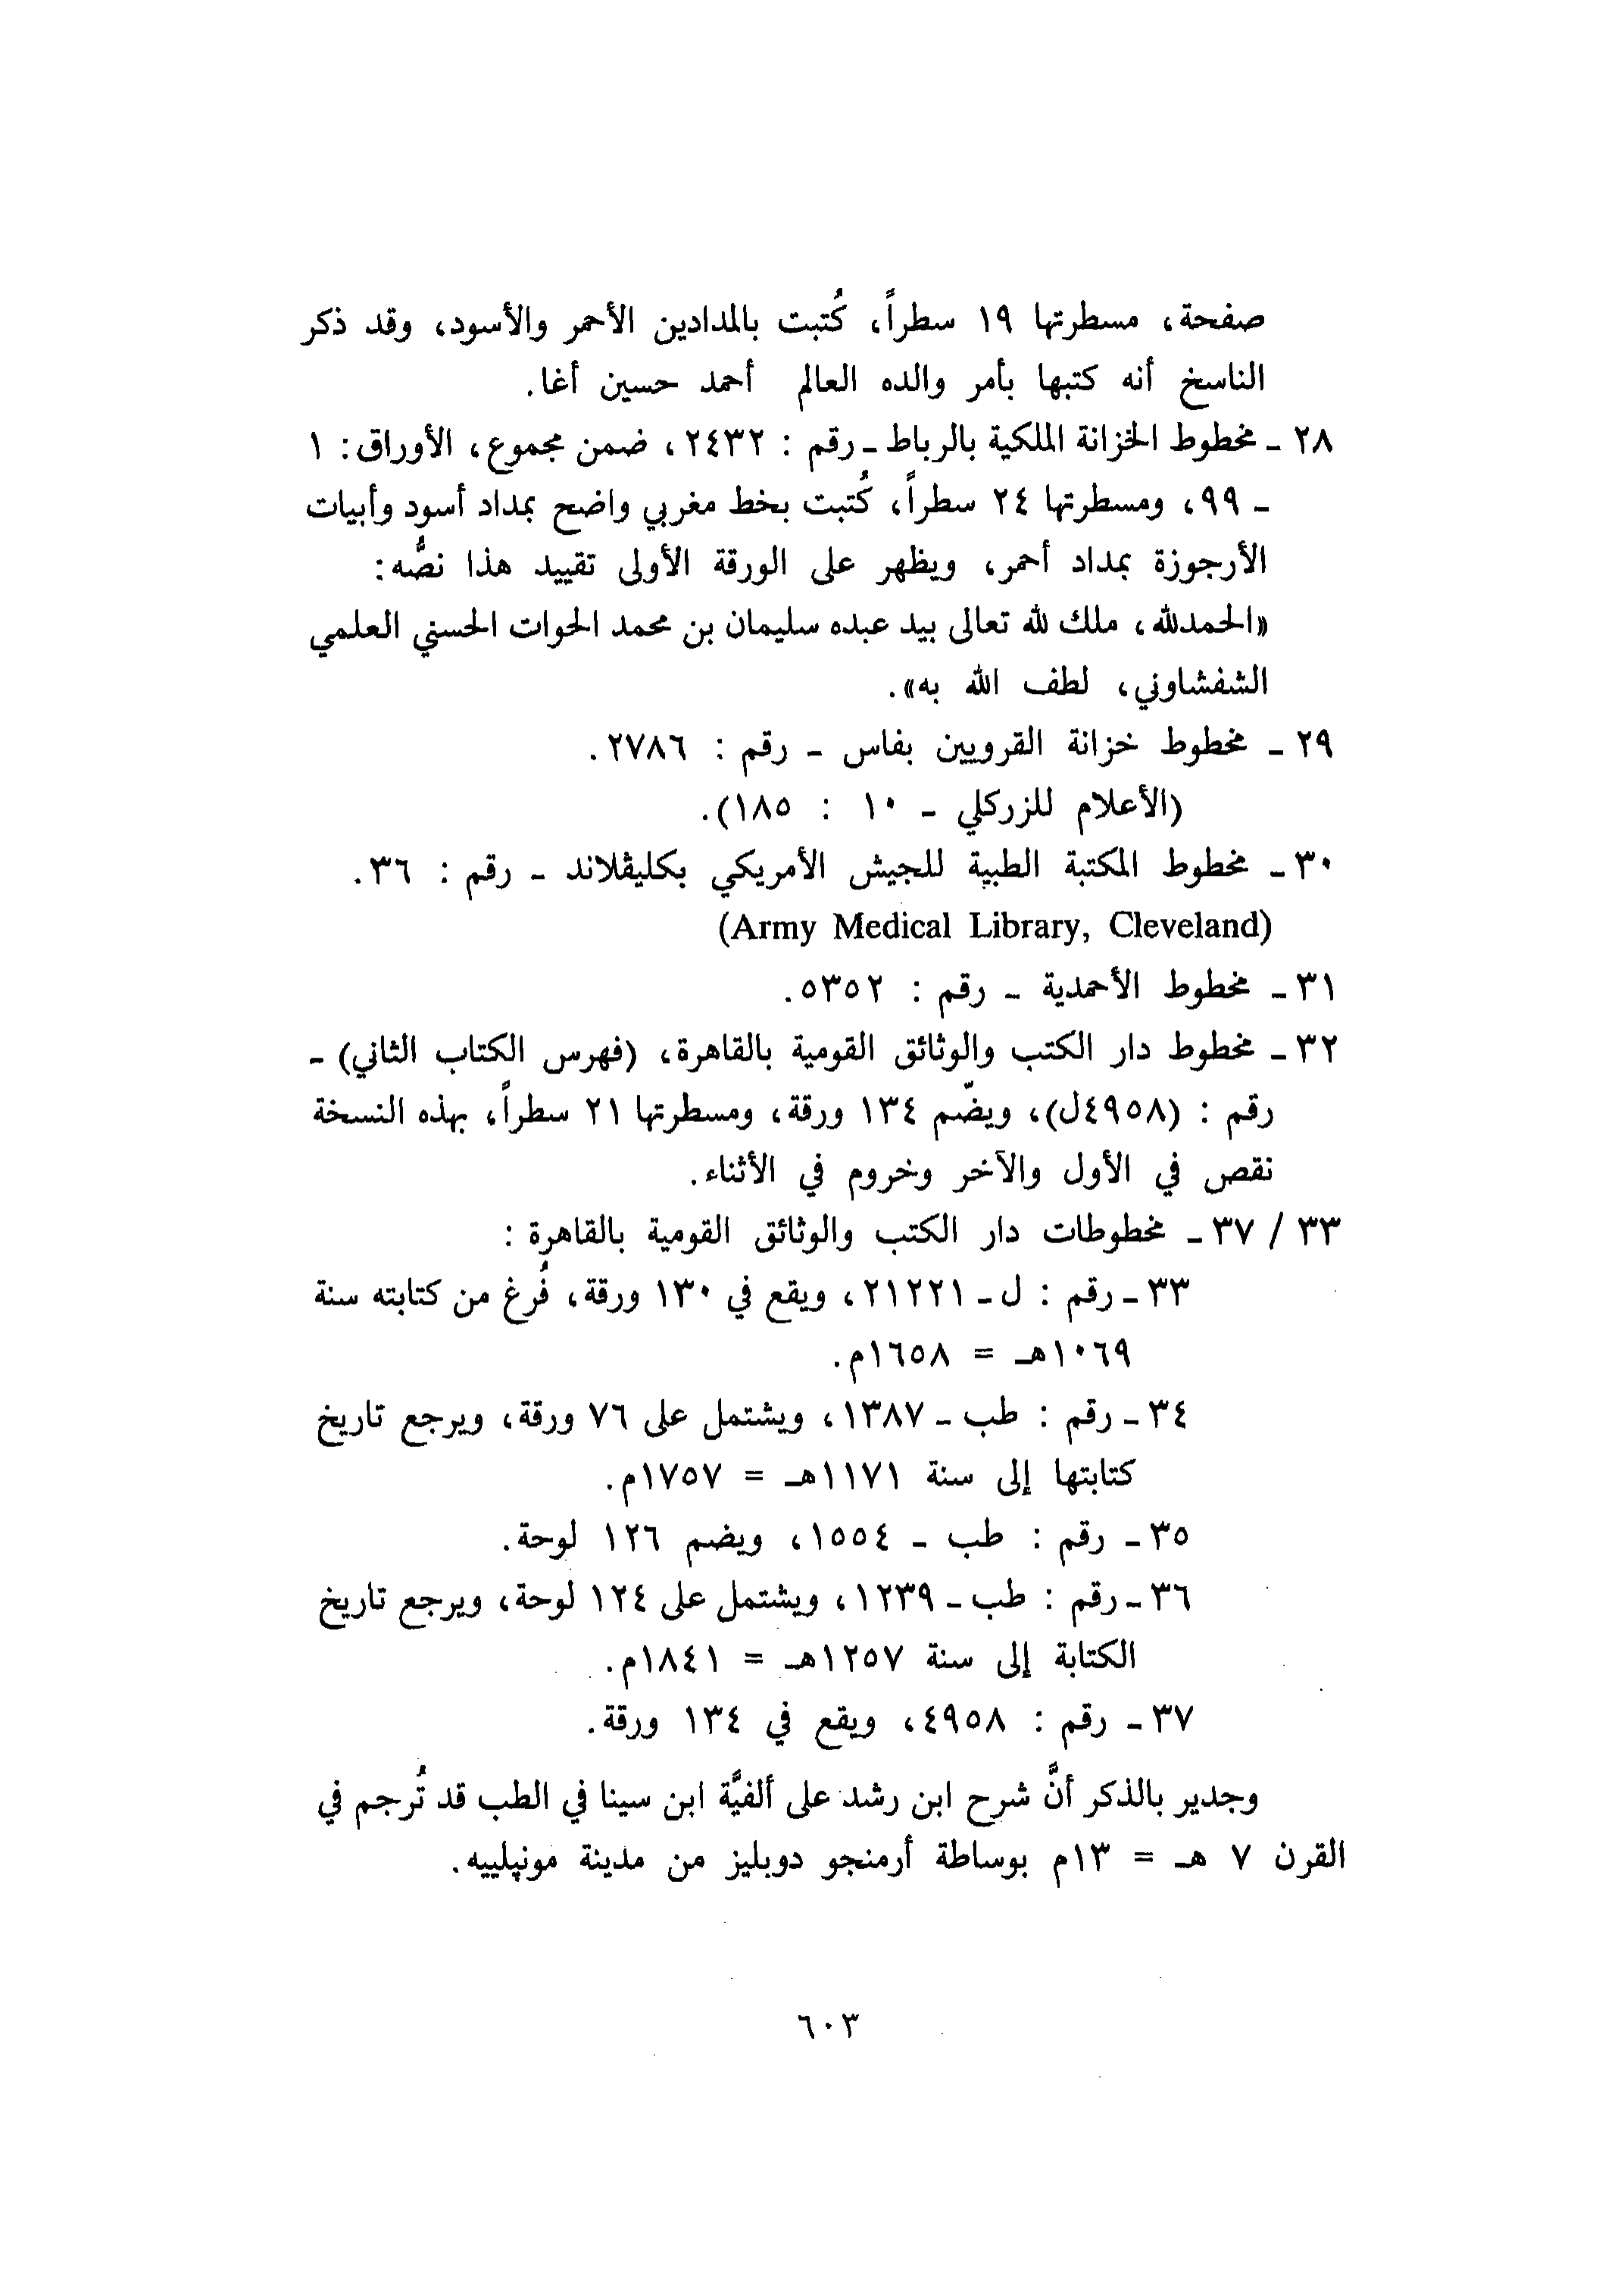 صفحة، مسطرتها ١٩ سطراً، كُتبت بالمدادين الأحمر والأسود، وقد ذكر
الناسخ أنه كتبها بأمر والده العالم أحمد حسين أغا.
٢٨ - مخطوط الخزانة الملكية بالرباط - رقم : ٢٤٣٢، ضمن مجموع، الأوراق: ١
- ٩٩، ومسطرتها ٢٤ سطراً، كُتبت بخط مغربي واضح بمداد أسود وأبيات
الأرجوزة بمداد أحمر، ويظهر على الورقة الأولى تقييد هذا نصُّه:
«الحمدلله، ملك لله تعالى بيد عبده سليمان بن محمد الحوات الحسني العلمي
الشفشاوني، لطف الله به».
٢٩ - مخطوط خزانة القرويين بفاس - رقم : ٢٧٨٦.
(الأعلام للزركلي - ١٠ : ١٨٥).
٣٠ - مخطوط المكتبة الطبية للجيش الأمريكي بكليڤلاند - رقم : ٣٦.
(Army Medical Library, Cleveland)
٣١ - مخطوط الأحمدية - رقم : ٥٣٥٢.
٣٢ - مخطوط دار الكتب والوثائق القومية بالقاهرة، (فهرس الكتاب الثاني) -
رقم : (٤٩٥٨ل)، ويضّم ١٣٤ ورقة، ومسطرتها ٢١ سطراً، بهذه النسخة
نقص في الأول والآخر وخروم في الأثناء.
٣٣ / ٣٧ - مخطوطات دار الكتب والوثائق القومية بالقاهرة :
٣٣ - رقم : ل - ٢١٢٢١، ويقع في ١٣٠ ورقة، فُرغ من كتابته سنة
١٠٦٩هـ = ١٦٥٨م.
٣٤ - رقم : طب - ١٣٨٧، ويشتمل على ٧٦ ورقة، ويرجع تاريخ
كتابتها إلى سنة ١١٧١هـ = ١٧٥٧م.
٣٥ - رقم : طب - ١٥٥٤، ويضم ١٢٦ لوحة.
٣٦ - رقم : طب - ١٢٣٩، ويشتمل على ١٢٤ لوحة، ويرجع تاريخ
الكتابة إلى سنة ١٢٥٧هـ = ١٨٤١م.
٣٧ - رقم : ٤٩٥٨، ويقع في ١٣٤ ورقة.
وجدير بالذكر أنَّ شرح ابن رشد على ألفيَّة ابن سينا في الطب قد تُرجم في
القرن ٧ هـ = ١٣م بوساطة أرمنجو دوبليز من مدينة مونپلييه.
٦٠٣